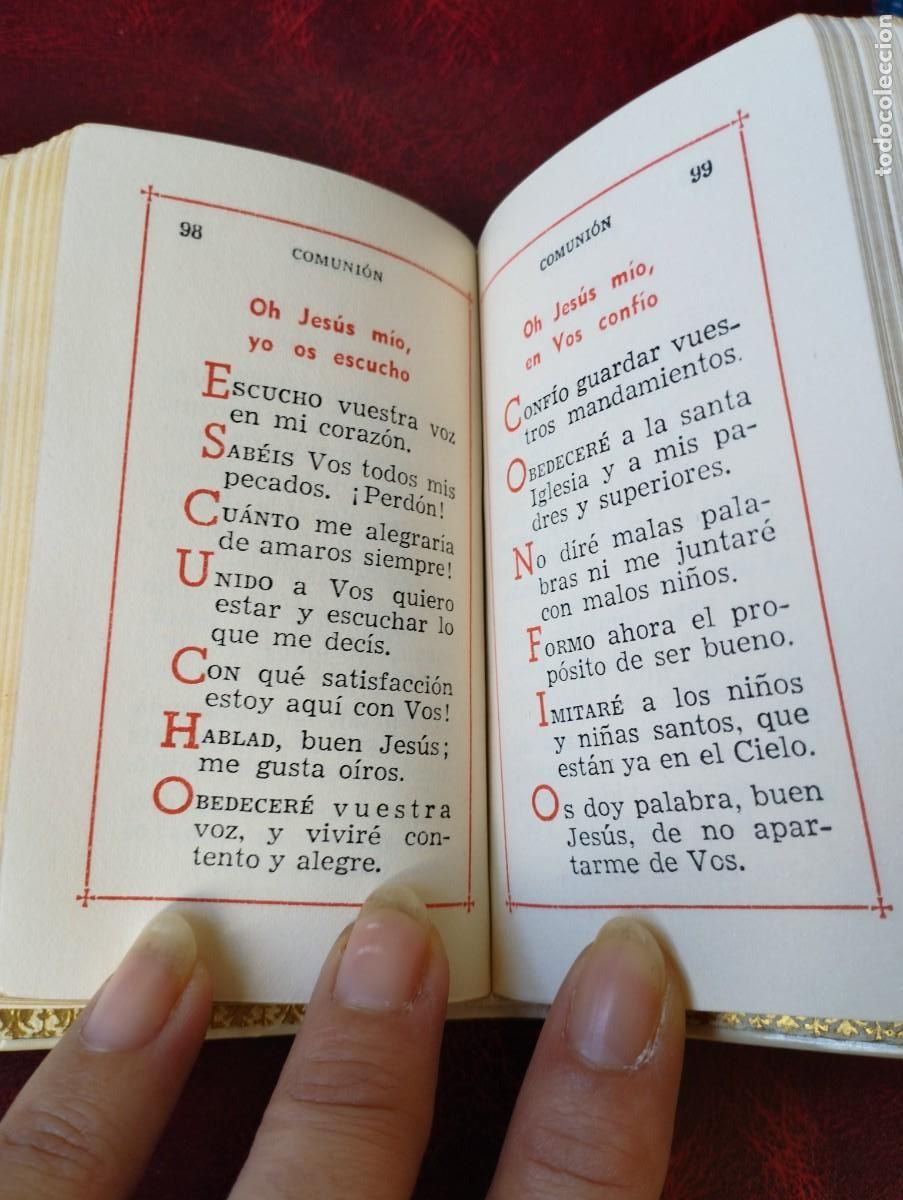 98
COMUNIÓN
Oh Jesús mío,
yo os escucho
ESCUCHO vuestra voz
en mi corazón.
SABÉIS Vos todos mis
pecados. ¡Perdón!
CUÁNTO me alegraría
de amaros siempre!
UNIDO a Vos quiero
estar y escuchar lo
que me decís.
CON qué satisfacción
estoy aquí con Vos!
HABLAD, buen Jesús;
me gusta oíros.
OBEDECERÉ vuestra
voz, y viviré con-
tento y alegre.
99
COMUNIÓN
Oh Jesús mío,
en Vos confío
CONFÍO guardar vues-
tros mandamientos.
OBEDECERÉ a la santa
Iglesia y a mis pa-
dres y superiores.
No diré malas pala-
bras ni me juntaré
con malos niños.
FORMO ahora el pro-
pósito de ser bueno.
IMITARÉ a los niños
y niñas santos, que
están ya en el Cielo.
Os doy palabra, buen
Jesús, de no apar-
tarme de Vos.
todocoleccion